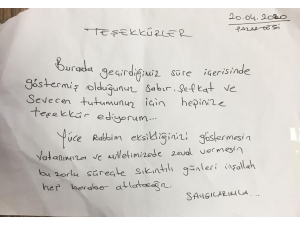 20.04.2020
PAZARTESİ
TEŞEKKÜRLER
Burada geçirdiğimiz süre içerisinde
göstermiş olduğunuz Sabır, Şefkat ve
Sevecen tutumunuz için hepinize
teşekkür ediyorum...
Yüce Rabbim eksikliğinizi göstermesin
Vatanımıza ve milletimizede zeval vermesin
bu zorlu süreçte sıkıntılı günleri inşallah
hep beraber atlatacağız
SAYGILARIMLA...